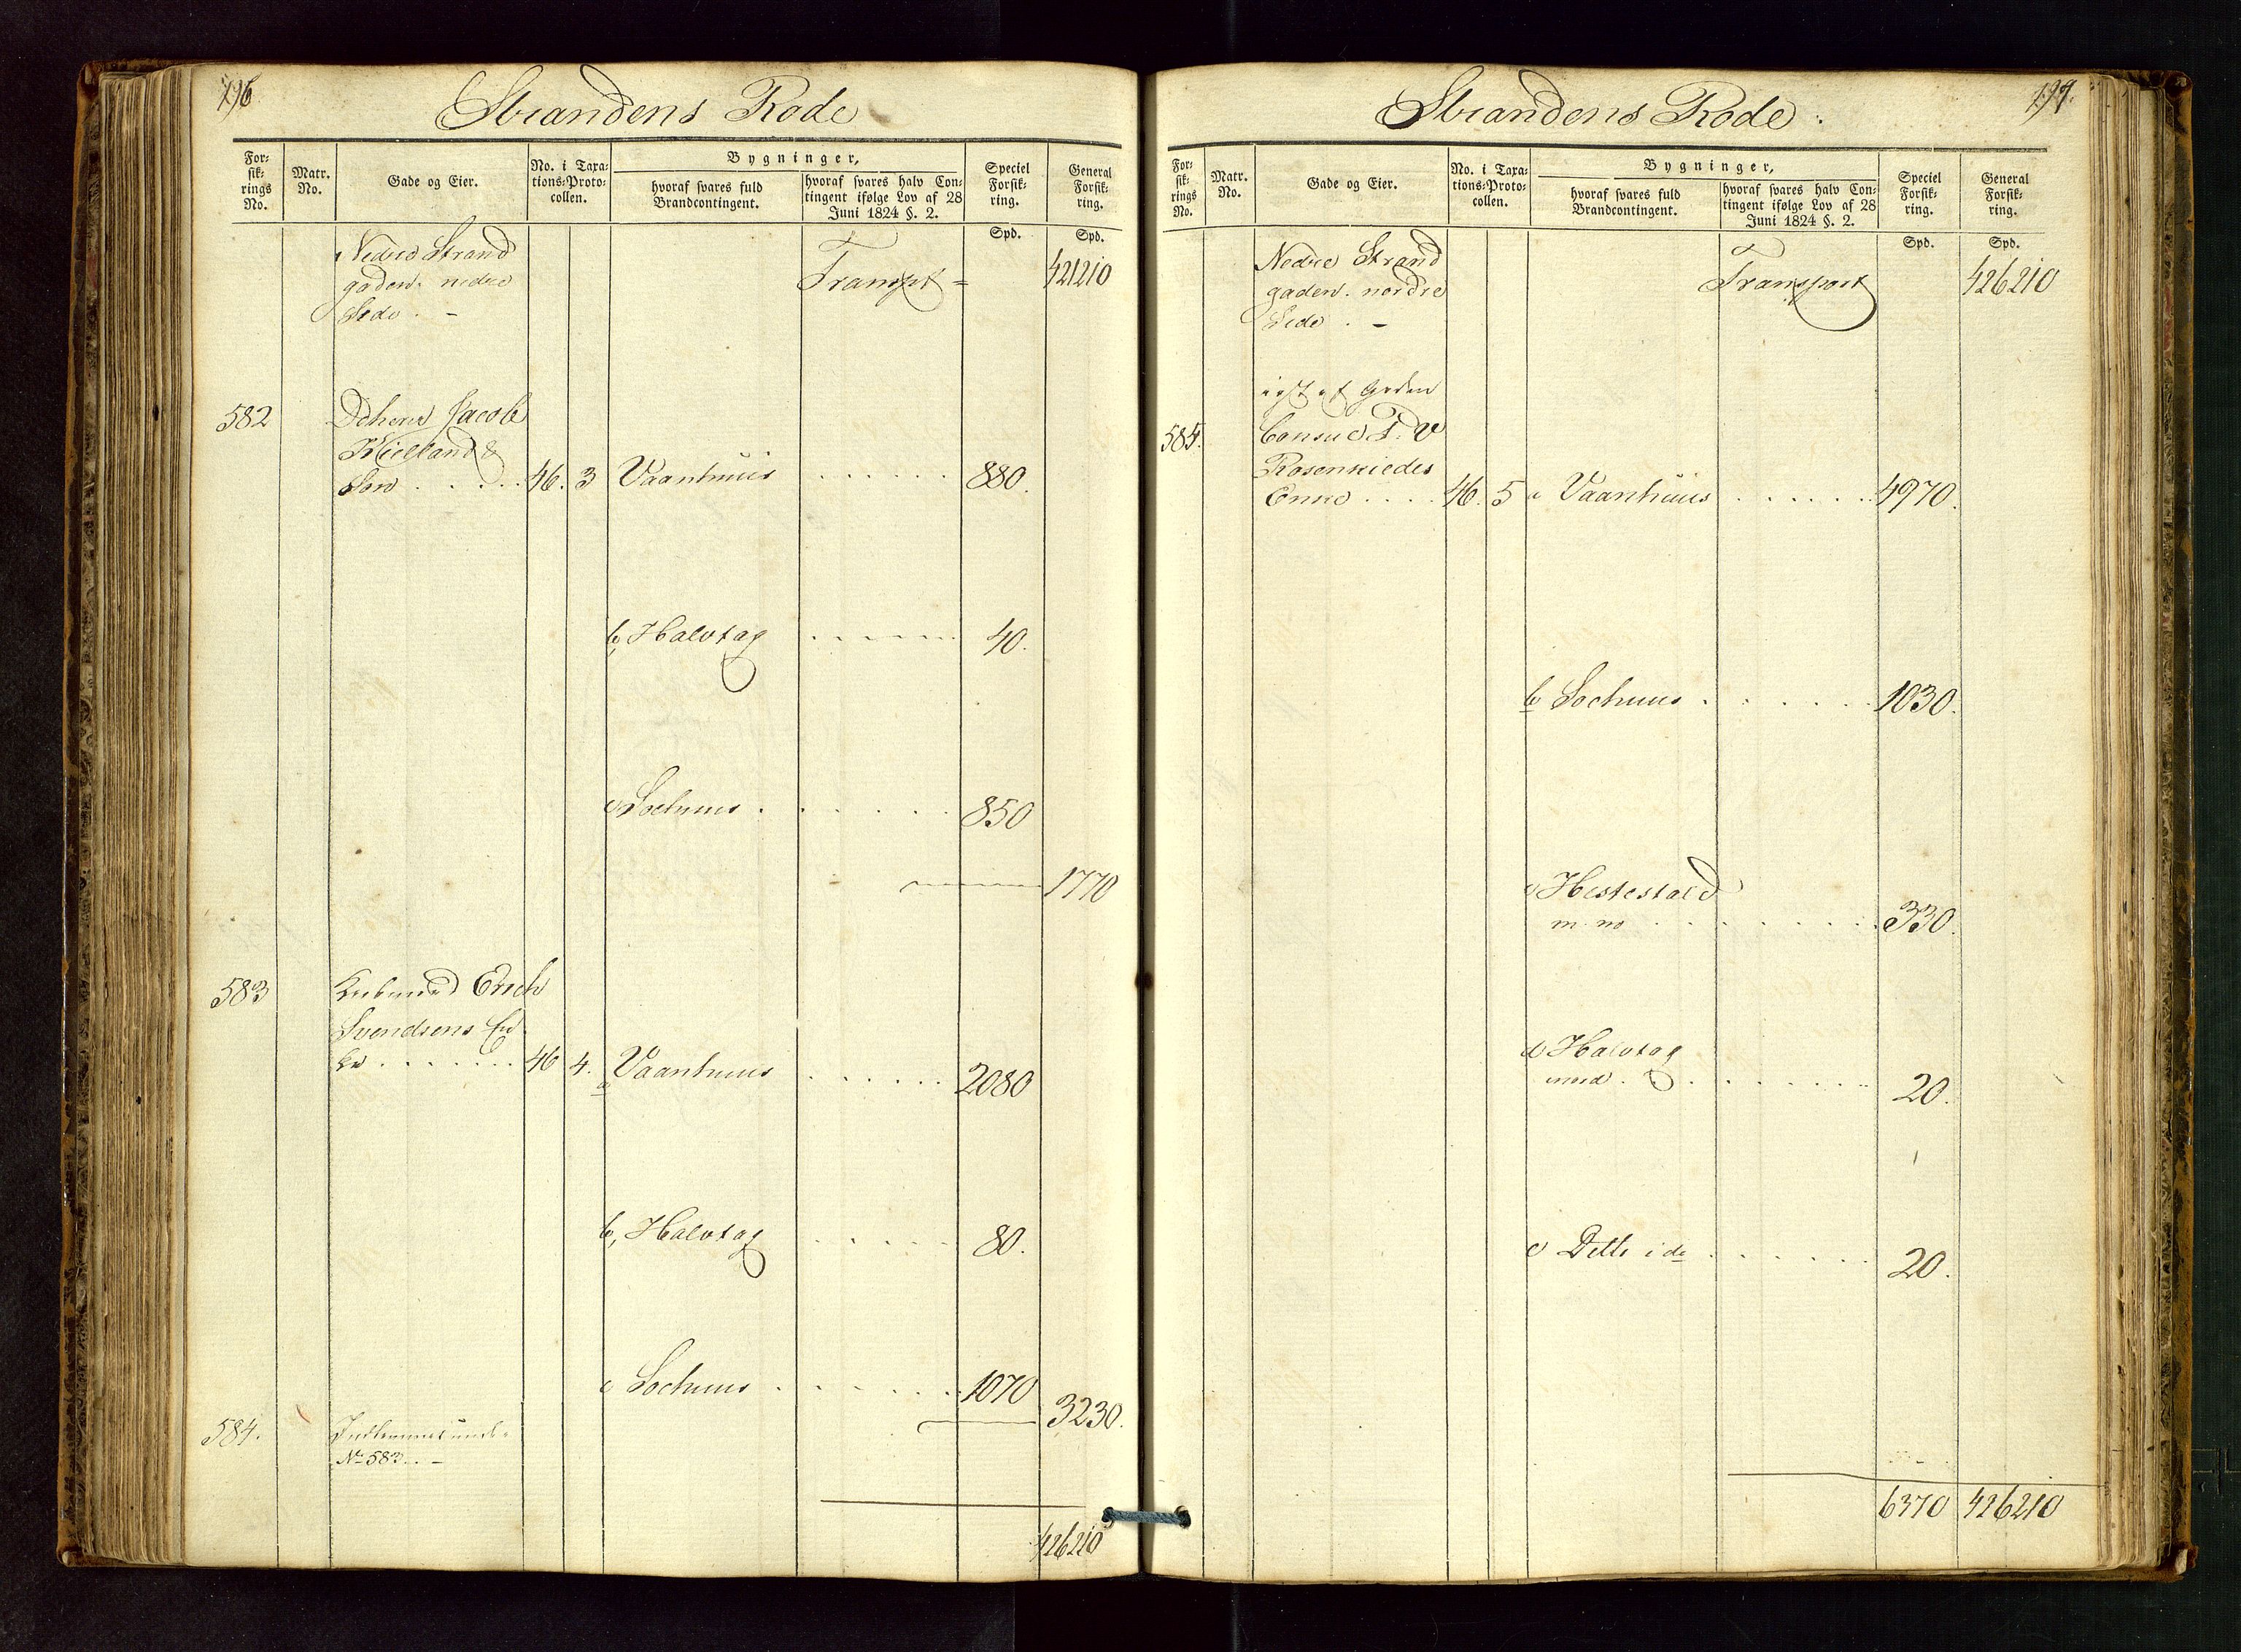 196
Strandens Rode
For:
sik:
rings
No.
Matr.
No.
Gade og Eier.
No. i Taxa:
tions:Proto:
collen.
Bygninger,
hvoraf svares fuld
Brandcontingent.
hvoraf svares halv Con:
tingent ifølge Lov af 28
Juni 1824 §. 2.
Speciel
Forsik:
ring.
General
Forsik:
ring.
Spd.
Spd.
Nedre Strand
gaden. nedre
Side . -
Transpt =
421210
582
Jacob
Kielland &
Søn . . . . . 46. 3 Vaanhuus . . . . . . 880.
b, Halvtag . . . . . . 40.
c Søehuus . . . . . . 850
1770
583
Erich
Svendsens En
ke . . . . . . . 46 4. a Vaanhuus . . . . . . 2080
b, Halvtag . . . . . 80.
c Søehuus . . . . . . 1070
3230.
584.
No 583. . -
426210
197.
Strandens Rode.
For:
sik:
rings
No.
Matr.
No.
Gade og Eier.
No. i Taxa:
tions:Proto:
collen.
Bygninger,
hvoraf svares fuld
Brandcontingent.
hvoraf svares halv Con:
tingent ifølge Lov af 28
Juni 1824 §. 2.
Speciel
Forsik:
ring.
General
Forsik:
ring.
Spd.
Spd.
Nedre Strand
gaden. nordre
Side . -
Transport
426210
585.
Consul P. V
Rosenkildes
Enke . . . . 46. 5 a Vaanhuus . . . . . . 4970.
b Søehuus . . . . . . 1030.
c Hestestald
m. m . . . . . . . . 330.
d Halvtag
. . . . . . . . 20.
e Dette i do . . . . . . 20.
6370 426210